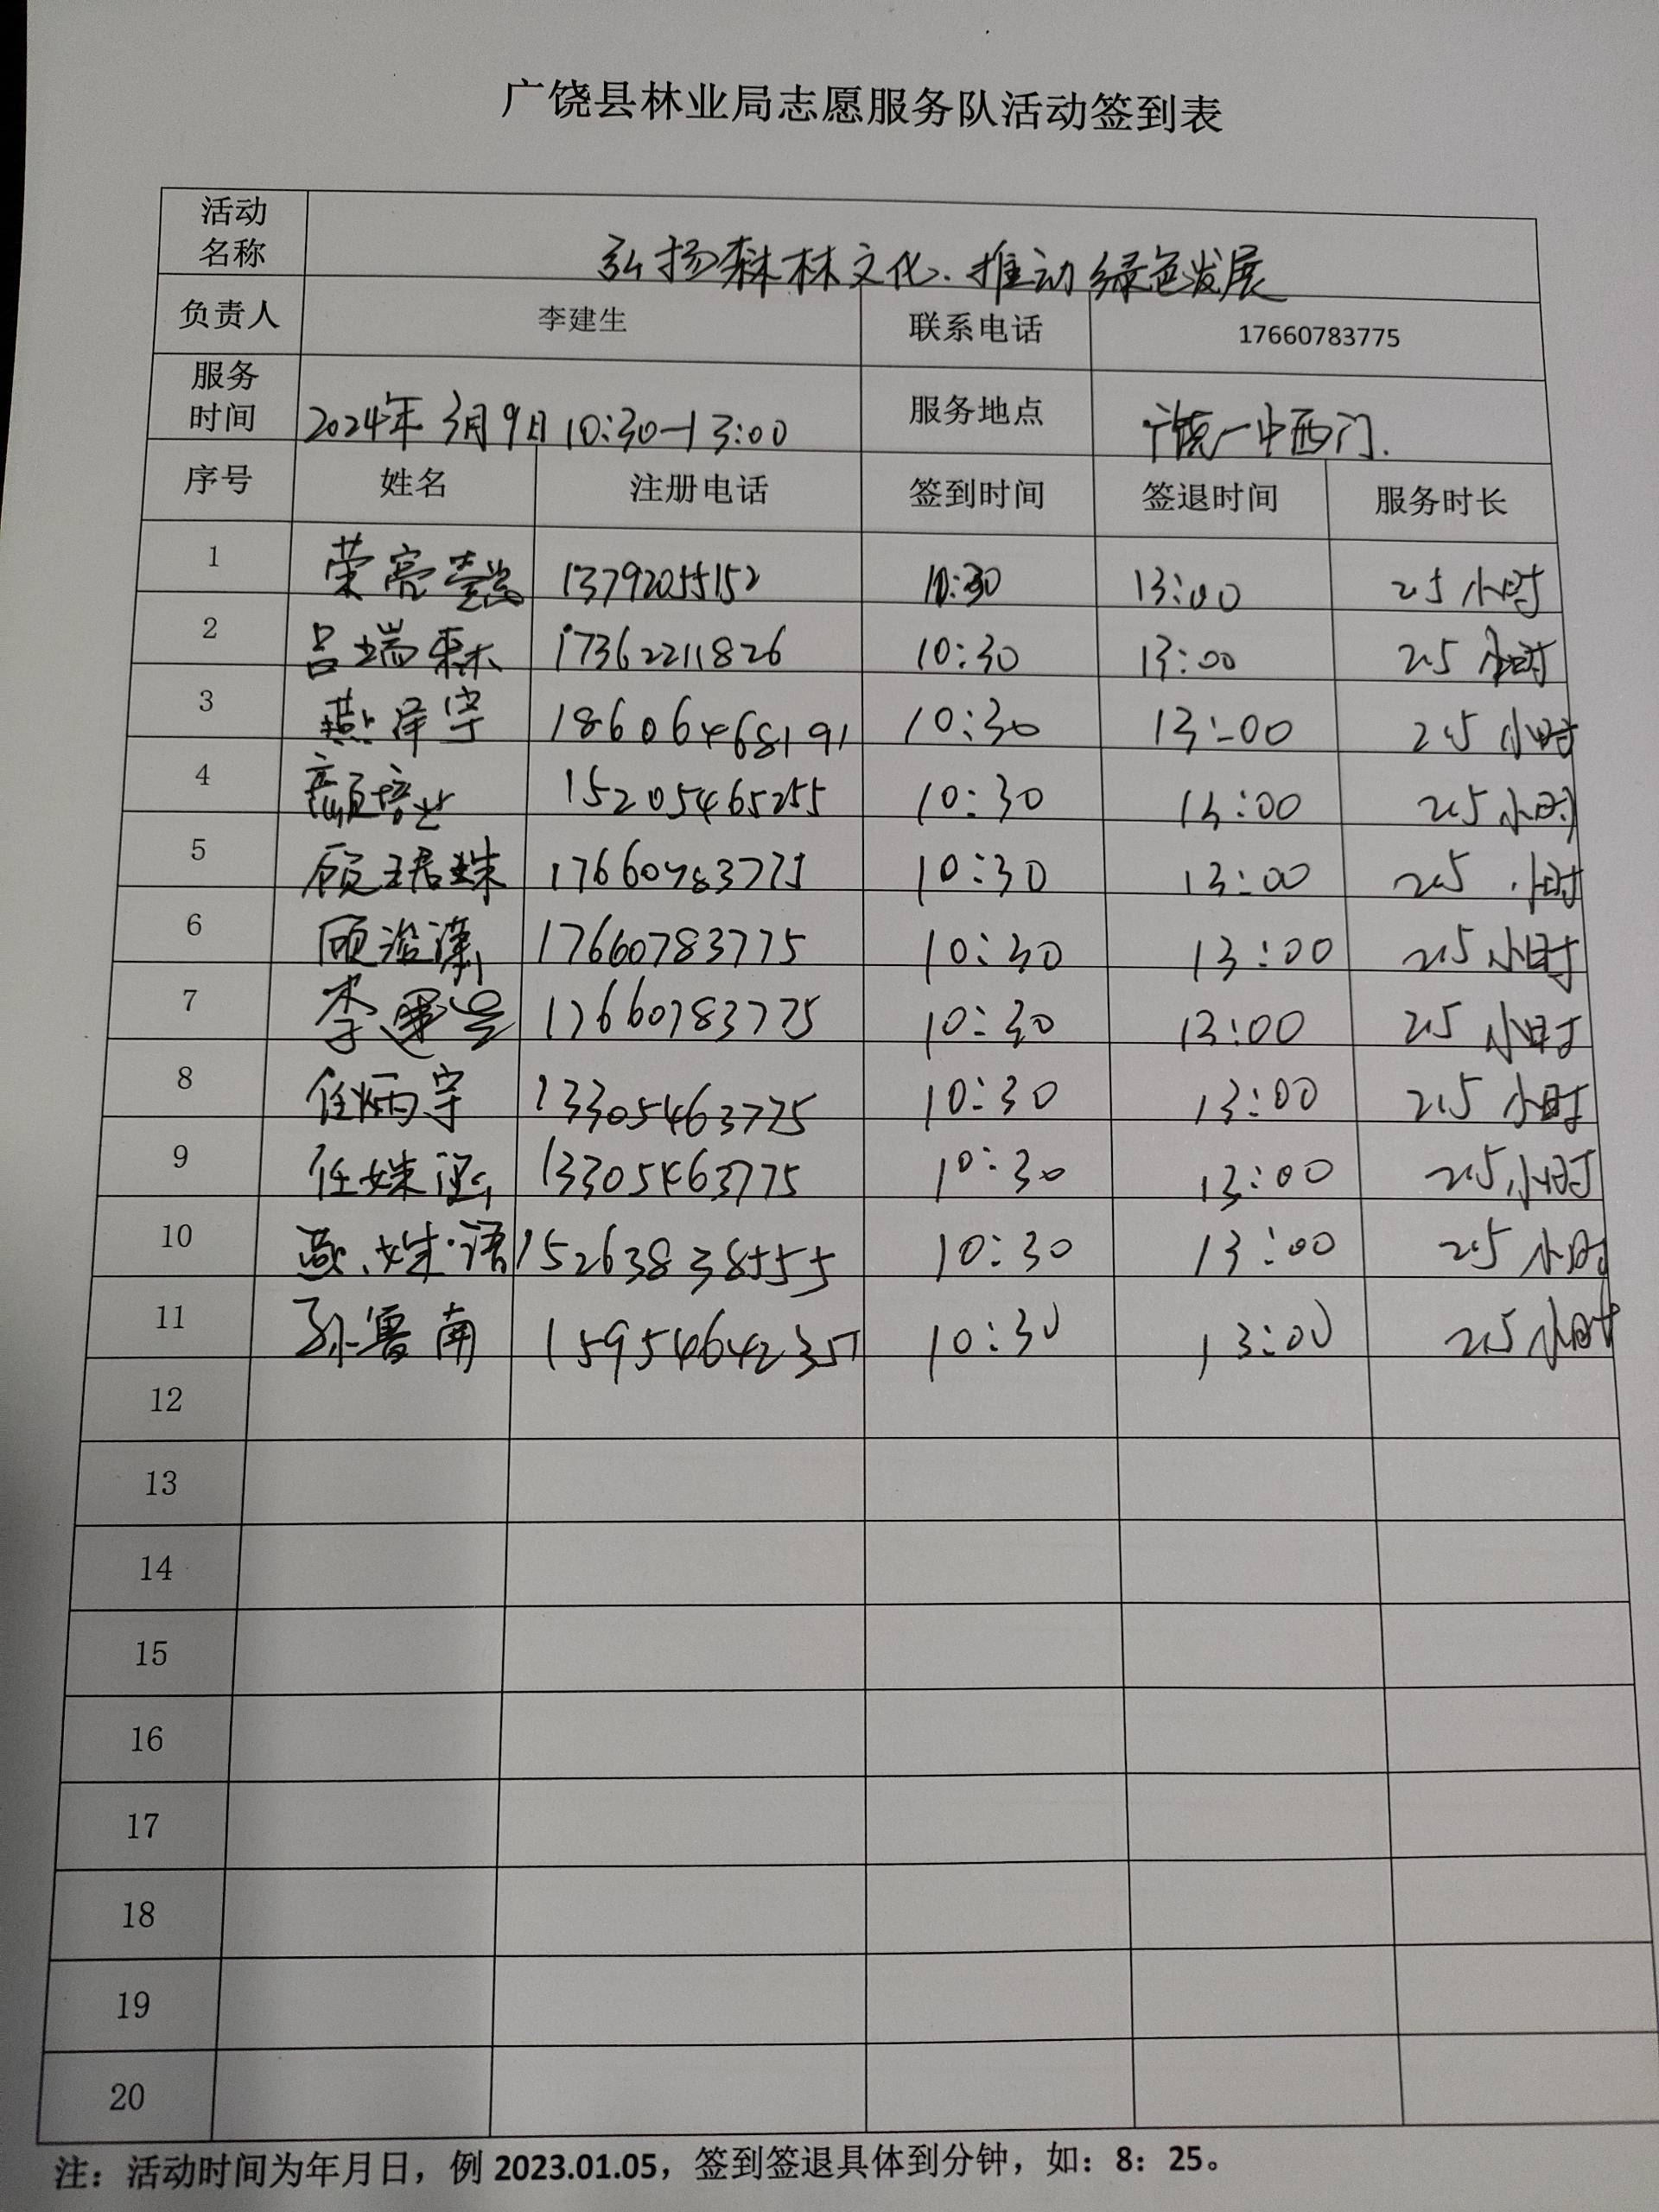 广饶县林业局志愿服务队活动签到表
活动名称 弘扬森林文化、推动绿色发展
负责人 李建生 联系电话 17660783775
服务时间 2024年3月9日10:30—13:00 服务地点 广饶一中西门.
序号 姓名 注册电话 签到时间 签退时间 服务时长
1 荣亮懿 13792055152 10:30 13:00 2.5小时
2 吕端森 17362211826 10:30 13:00 2.5小时
3 燕泽宇 18606468191 10:30 13:00 2.5小时
4 颜培 15205465255 10:30 13:00 2.5小时
5 顾珺姝 17660783775 10:30 13:00 2.5小时
6 顾 17660783775 10:30 13:00 2.5小时
7 李 17660783775 10:30 13:00 2.5小时
8 任炳宇 13305463775 10:30 13:00 2.5小时
9 任姝 13305463775 10:30 13:00 2.5小时
10 燕姝语 15263838555 10:30 13:00 2.5小时
11 孙鲁南 15954642357 10:30 13:00 2.5小时
12
13
14
15
16
17
18
19
20
注：活动时间为年月日，例 2023.01.05，签到签退具体到分钟，如：8：25。